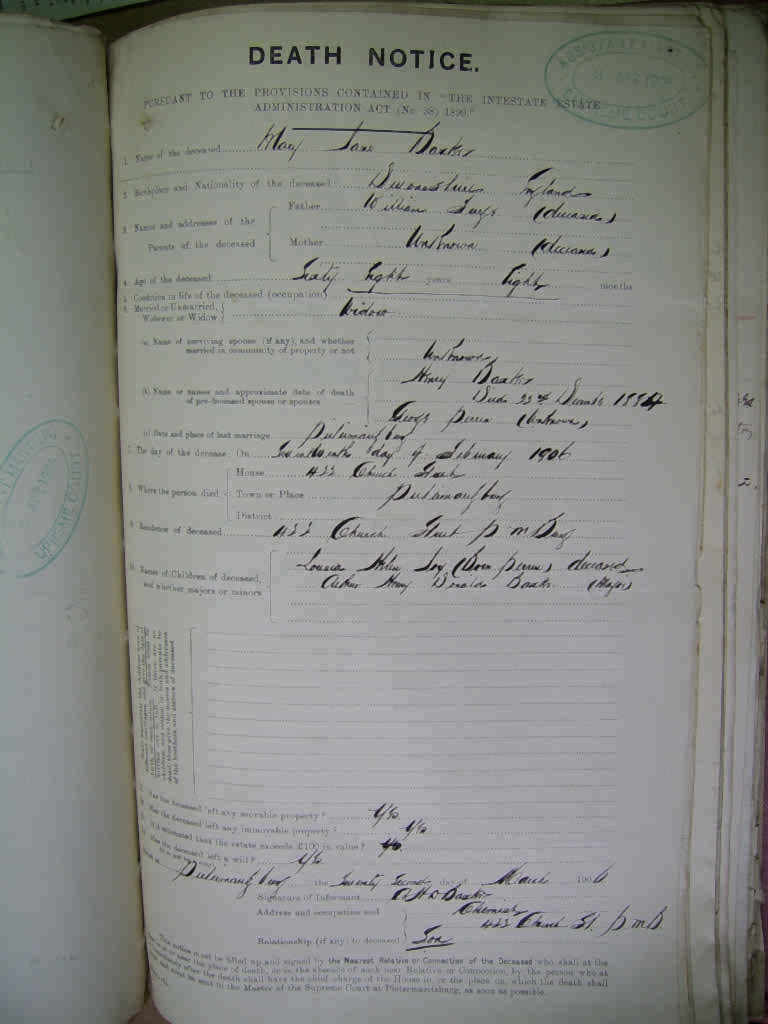 DEATH NOTICE.
SUPREME COURT
PURSUANT TO THE PROVISIONS CONTAINED IN "THE INTESTATE ESTATE
ADMINISTRATION ACT (No. 38) 1899."
1. Name of the deceased Mary Jane
2. Birthplace and Nationality of the deceased Devonshire England
3. Names and addresses of the Parents of the deceased
Father William (deceased)
Mother Unknown (deceased)
4. Age of the deceased Sixty Eight years Eight months
5. Condition in life of the deceased (occupation)
6. Married or Unmarried, Widower or Widow Widow
(a) Name of surviving spouse (if any), and whether
married in community of property or not
Unknown
(b) Name or names and approximate date of death
of pre-deceased spouse or spouses
Henry
Died 23rd December 1884
George Perrin (Unknown)
(c) Date and place of last marriage Pietermaritzburg
7. The day of the decease On day of February 1906
8. Where the person died
House 422 Church Street
Town or Place Pietermaritzburg
District
9. Residence of deceased 422 Church Street P M Burg
10. Names of Children of deceased,
and whether majors or minors
Louisa Helen (Born Perrin) deceased
Arthur Henry Donald (Major)
Has the deceased left any movable property? Yes
Has the deceased left any immovable property? Yes
Is it estimated that the estate exceeds £100 in value? Yes
Has the deceased left a will? Yes
Dated at Pietermaritzburg the Twenty Second day of March 1906
Signature of Informant A H D
Address and occupation and Chemist
422 Church St. P M B
Relationship (if any) to deceased Son
This notice must be filled up and signed by the Nearest Relative or Connection of the Deceased who shall at the
or near the place of death, or in the absence of such near Relative or Connection, by the person who at
after the death shall have the chief charge of the House in or the place on, which the death shall
and must be sent to the Master of the Supreme Court at Pietermaritzburg, as soon as possible.